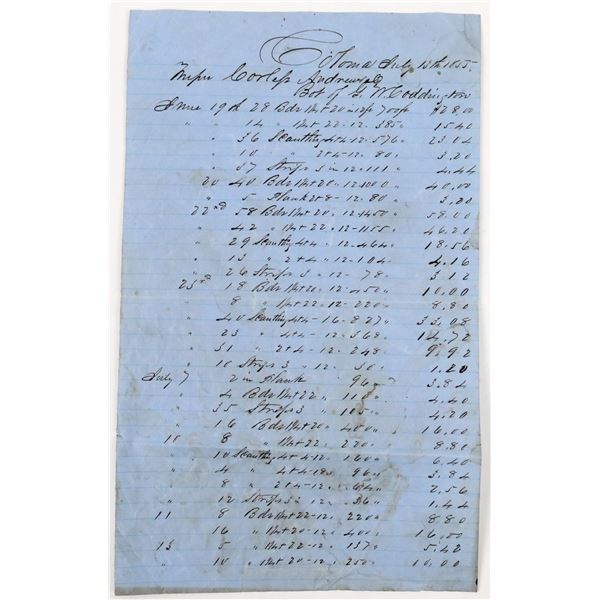 Coloma July 13th 1855.
Messrs Corless Andrews
Bot of G W Coddington
June 19th 28 Bds 1x20-12ft 700ft $28.00
" 14 " 1x22-12- 385 " 15.40
" 36 Scantling 4x4-12-576 " 23.04
" 10 " 2x4-12- 80 " 3.20
" 37 Strips 3 in 12-111 " 4.44
20 40 Bds 1x20-12-1000 " 40.00
" 5 Plank 2x8-12- 80 " 3.20
22nd 58 Bds 1x20-12-1450 " 58.00
" 42 " 1x22-12-1155 " 46.20
" 29 Scantling 4x4-12-464 " 18.56
" 13 " 2x4-12-104 " 4.16
" 26 Strips 3 " 12- 78 " 3.12
23rd 18 Bds 1x20-12-450 " 10.00
" 8 " 1x22-12-220 " 8.80
" 40 Scantling 4x4-16-827 " 33.08
" 23 " 4x4-12-368 " 14.72
" 31 " 2x4-12-248 " 9.92
" 10 Strips 3 " 12- 30 " 1.20
July 7 2 in Plank 96 " 3.84
" 4 Bds 1x22 " 110 " 4.40
" 35 Strips 3 " 105 " 4.20
" 16 Bds 1x20 " 400 " 16.00
10 8 " 1x22 " 220 " 8.80
" 10 Scantling 4x4-12-160 " 6.40
" 4 " 4x4-18- 96 " 3.84
" 8 " 2x4-12- 64 " 2.56
" 12 Strips 3 " 12- 36 " 1.44
11 8 Bds 1x22-12-220 " 8.80
" 16 " 1x20-12-400 " 16.00
13 5 " 1x22-12-137 " 5.42
" 10 " 1x20-12-250 " 10.00